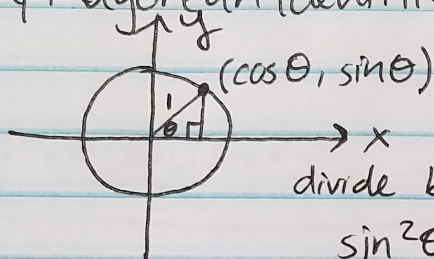 y
(cos θ, sin θ)
1
θ
x
divide
sin²θ